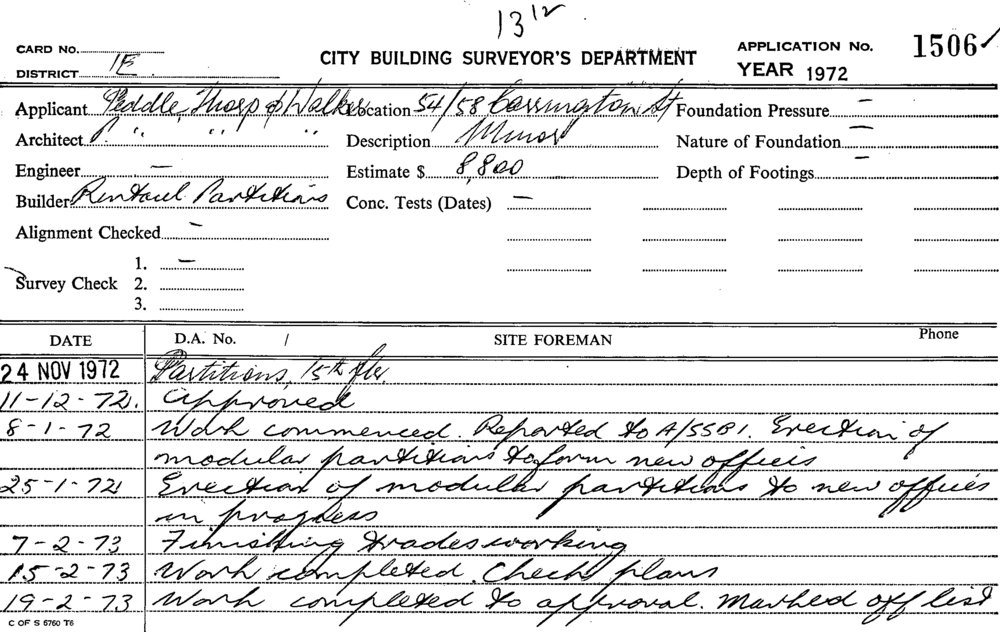 13 12
CARD No.
CITY BUILDING SURVEYOR'S DEPARTMENT
APPLICATION No. 1506
DISTRICT 1E
YEAR 1972
Applicant Peddle, Thorp & Walker Location 54/58 Carrington St Foundation Pressure –
Architect " " " Description Minor Nature of Foundation –
Engineer – Estimate $ 8,800 Depth of Footings –
Builder Partitions Conc. Tests (Dates) –
Alignment Checked –
1. –
Survey Check 2.
3.
DATE D.A. No. / SITE FOREMAN Phone
24 NOV 1972 Partitions, 15th flr.
11-12-72. Approved
8-1-72 Work commenced. Reported to A/SSB1. Erection of
modular partitions to form new offices
25-1-72 Erection of modular partitions to new offices
in progress
7-2-73 Finishing trades working
15-2-73 Work completed. Check plans
19-2-73 Work completed to approval. Marked off list
C OF S 6760 T6